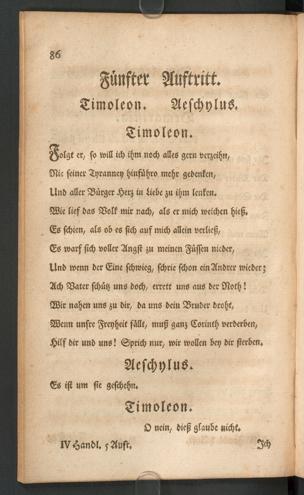 86
Fünfter Auftritt.
Timoleon. Aeschylus.
Timoleon.
Folgt er, so will ich ihm noch alles gern verzeihn,
Nie seiner Tyranney hinführo mehr gedenken,
Und aller Bürger Herz in Liebe zu ihm lenken.
Wie lief das Volk mir nach, als er mich weichen hieß,
Es schien, als ob es sich auf mich allein verließ,
Es warf sich voller Angst zu meinen Füssen nieder,
Und wenn der Eine schwieg, schrie schon ein Andrer wieder;
Ach Vater schütz uns doch, errett uns aus der Noth!
Wir nahen uns zu dir, da uns dein Bruder droht,
Wenn unsre Freyheit fällt, muß ganz Corinth verderben,
Hilf dir und uns! Sprich nur, wir wollen bey dir sterben.
Aeschylus.
Es ist um sie geschehn.
Timoleon.
O nein, dieß glaube nicht.
IV Handl. 5 Auft. Ich